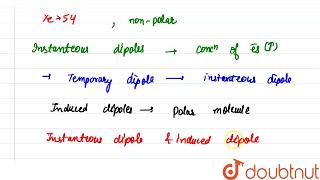 Xe → 54 , non-polar
Instanteous dipoles → concn of es (↑)
→ Temporary dipole → instenteous dipole
Induced dipoles → Polar molecule
Instantious dipole & Induced dipole
doubtnut